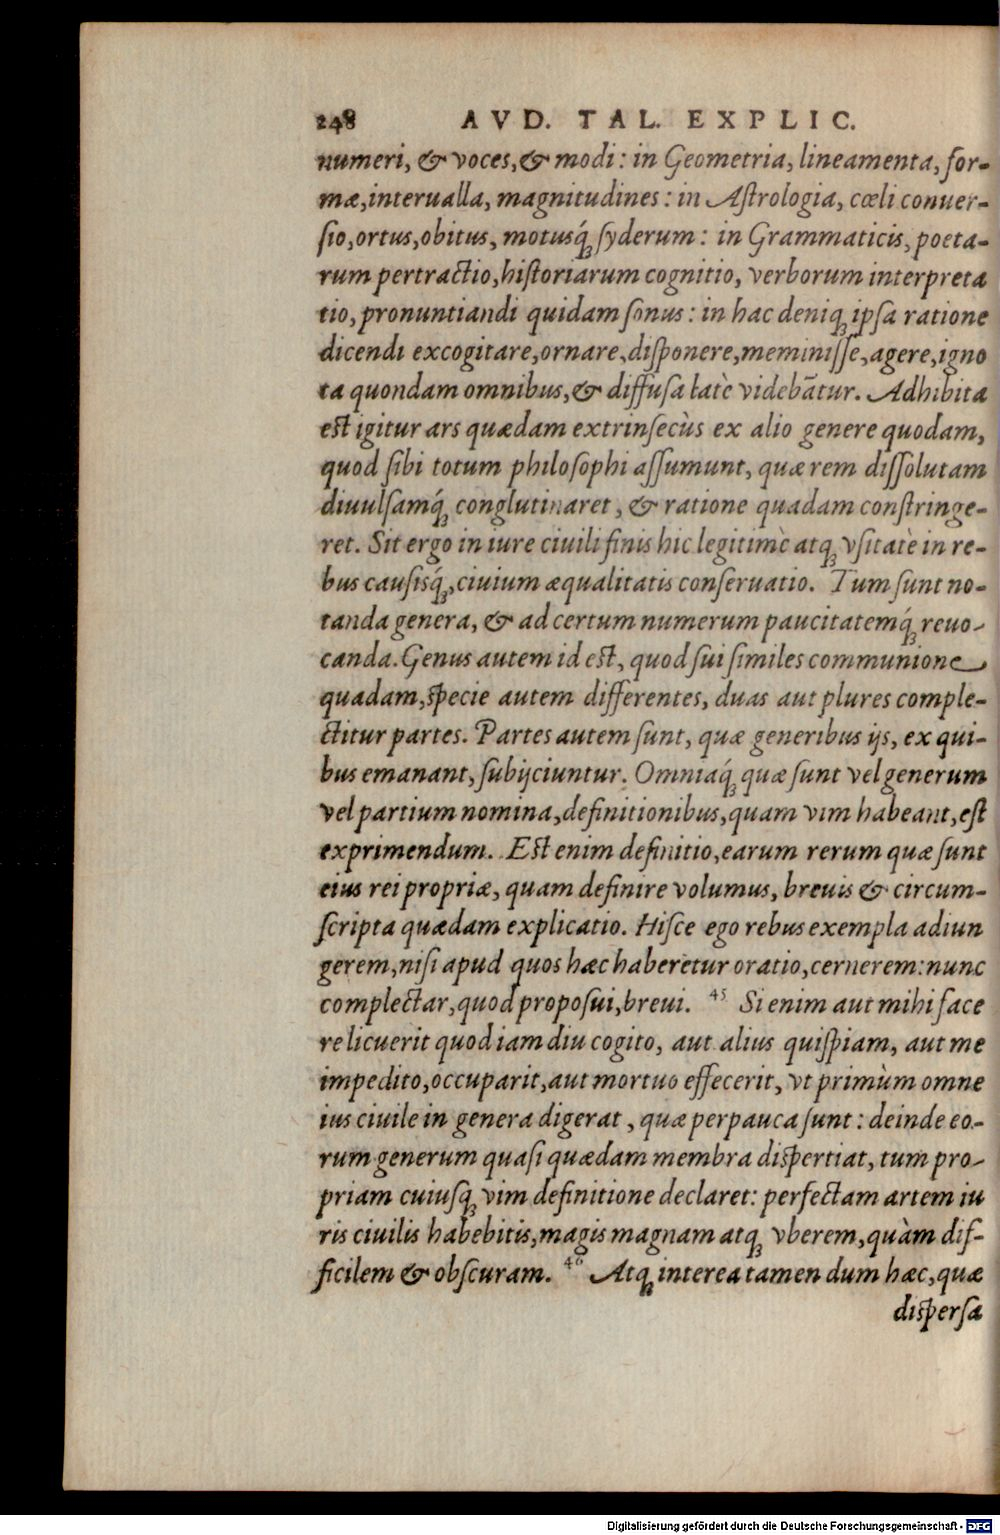 248 AVD. TAL. EXPLIC.
numeri, & voces, & modi: in Geometria, lineamenta, for-
mæ, interualla, magnitudines: in Aſtrologia, cœli conuer-
ſio, ortus, obitus, motusq́ꝫ ſyderum: in Grammaticis, poeta-
rum pertractio, hiſtoriarum cognitio, verborum interpreta
tio, pronuntiandi quidam ſonus: in hac deniqꝫ ipſa ratione
dicendi excogitare, ornare, diſponere, meminiſſe, agere, igno
ta quondam omnibus, & diffuſa latè videbātur. Adhibita
eſt igitur ars quædam extrinſecùs ex alio genere quodam,
quod ſibi totum philoſophi aſſumunt, quæ rem diſſolutam
diuulſamq́ꝫ conglutinaret, & ratione quadam conſtringe-
ret. Sit ergo in iure ciuili finis hic legitimè atqꝫ vſitatè in re-
bus cauſisq́ꝫ, ciuium æqualitatis conſeruatio. Tum ſunt no-
tanda genera, & ad certum numerum paucitatemq́ꝫ reuo-
canda. Genus autem id eſt, quod ſui ſimiles communione
quadam, ſpecie autem differentes, duas aut plures comple-
ctitur partes. Partes autem ſunt, quæ generibus ijs, ex qui-
bus emanant, ſubijciuntur. Omniaq́ꝫ quæ ſunt vel generum
vel partium nomina, definitionibus, quam vim habeant, eſt
exprimendum. Eſt enim definitio, earum rerum quæ ſunt
eius rei propriæ, quam definire volumus, breuis & circum-
ſcripta quædam explicatio. Hiſce ego rebus exempla adiun
gerem, niſi apud quos hæc haberetur oratio, cernerem: nunc
complectar, quod propoſui, breui. 45 Si enim aut mihi face
re licuerit quod iam diu cogito, aut alius quiſpiam, aut me
impedito, occuparit, aut mortuo effecerit, vt primùm omne
ius ciuile in genera digerat, quæ perpauca ſunt: deinde eo-
rum generum quaſi quædam membra diſpertiat, tum pro-
priam cuiuſqꝫ vim definitione declaret: perfectam artem iu
ris ciuilis habebitis, magis magnam atqꝫ vberem, quàm dif-
ficilem & obſcuram. 46 Atqꝫ interea tamen dum hæc, quæ
diſperſa
Digitalisierung gefördert durch die Deutsche Forschungsgemeinschaft - DFG